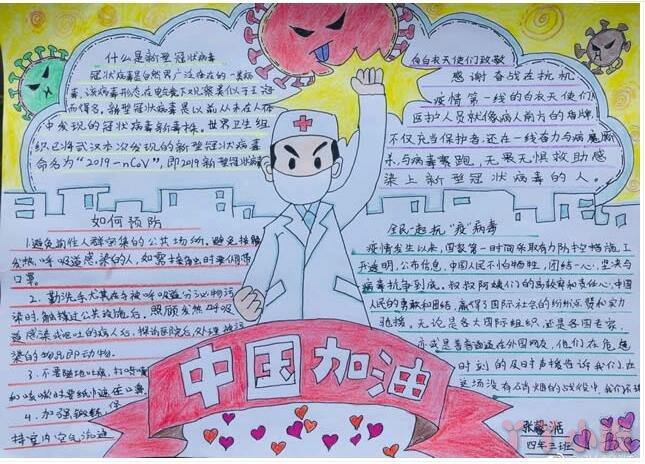 什么是新型冠状病毒
冠状病毒是自然界广泛存在的一类病
毒,该病毒形态在
中发现的冠状病毒新毒株。世界卫生组
织已将武汉本次发现的新型冠状病毒
命名为“2019-nCoV”,即2019新型冠状病毒
向白衣天使们致敬
感谢奋战在抗击
疫情第一线的白衣天使们,
医护人员就像病人前方的盾牌
不仅充当保护者,还在一线奋力与病魔厮
杀,与病毒赛跑,无畏无惧救助感
染上新型冠状病毒的人。
如何预防
1.避免前往人群密集的公共场所。避免接触
发热、呼吸道感染的人,如需接触时要佩戴
口罩。
2.勤洗手尤其在手被呼吸道分泌物污
染时、触摸过公共设施后、照顾发热呼吸
道感染或呕吐的病人后、探访医院后、处理被污
染的物品即动物
3.不要随地吐痰,打喷嚏
4.加强锻炼,保
持室内空气流通
全民一起抗“疫”病毒
疫情发生以来,国家第一时间采取有力防控措施,工
开透明,公布信息,中国人民不怕牺牲,团结一心,坚决与
病毒抗争到底。
民的勇敢和团结,赢得了国际社会的纷纷点赞和实力
驰援。无论是各大国际组织,还是各国老家,
亦或是普普通通在外国网友,他们在危难
时刻的及时声援告诉我们,在
这场没有硝烟的战役中,我们
中国加油
四年三班